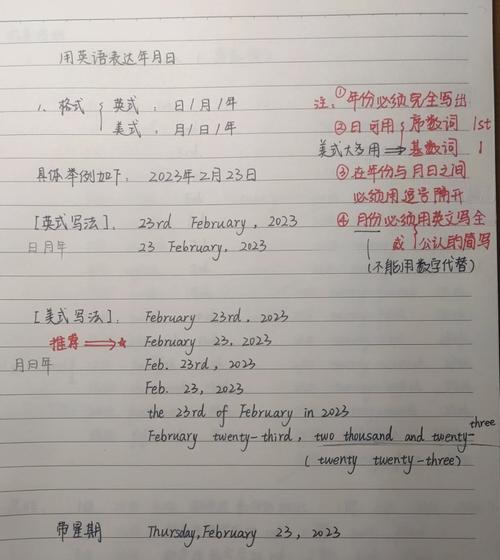 用英语表达年月日
1. 格式 { 英式：日/月/年
美式：月/日/年
注：①年份必须完全写出
②日可用 { 序数词 1st
美式大多用 → 基数词 1
③在年份与月日之间
必须用逗号隔开
④月份必须用英文写全
或公认的简写
(不能用数字代替)
具体举例如下：2023年2月23日
[英式写法]. 23rd February, 2023
日月年 23 February, 2023
[美式写法]. February 23rd, 2023
推荐 → ★ February 23, 2023
月日年 Feb. 23rd, 2023
Feb. 23, 2023
the 23rd of February in 2023
February twenty-third, two thousand and twenty-three
(twenty twenty-three)
带星期 Thursday, February 23, 2023